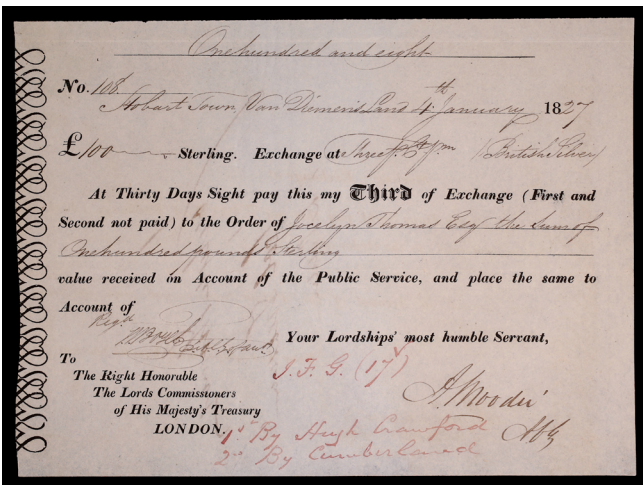 One hundred and eight
No. 108
Hobart Town Van Diemen's Land 4th January 1827
£100 Sterling. Exchange at Three p Ct pm (British Silver)
At Thirty Days Sight pay this my Third of Exchange (First and
Second not paid) to the Order of Jocelyn Thomas Esq the Sum of
One hundred pounds Sterling
value received on Account of the Public Service, and place the same to
Account of
Regd
Your Lordships' most humble Servant,
To
The Right Honorable
The Lords Commissioners
of His Majesty's Treasury
LONDON.
J. F. G. (17)
A. Moodie
1st By Hugh Crawford
2nd By Cumberland